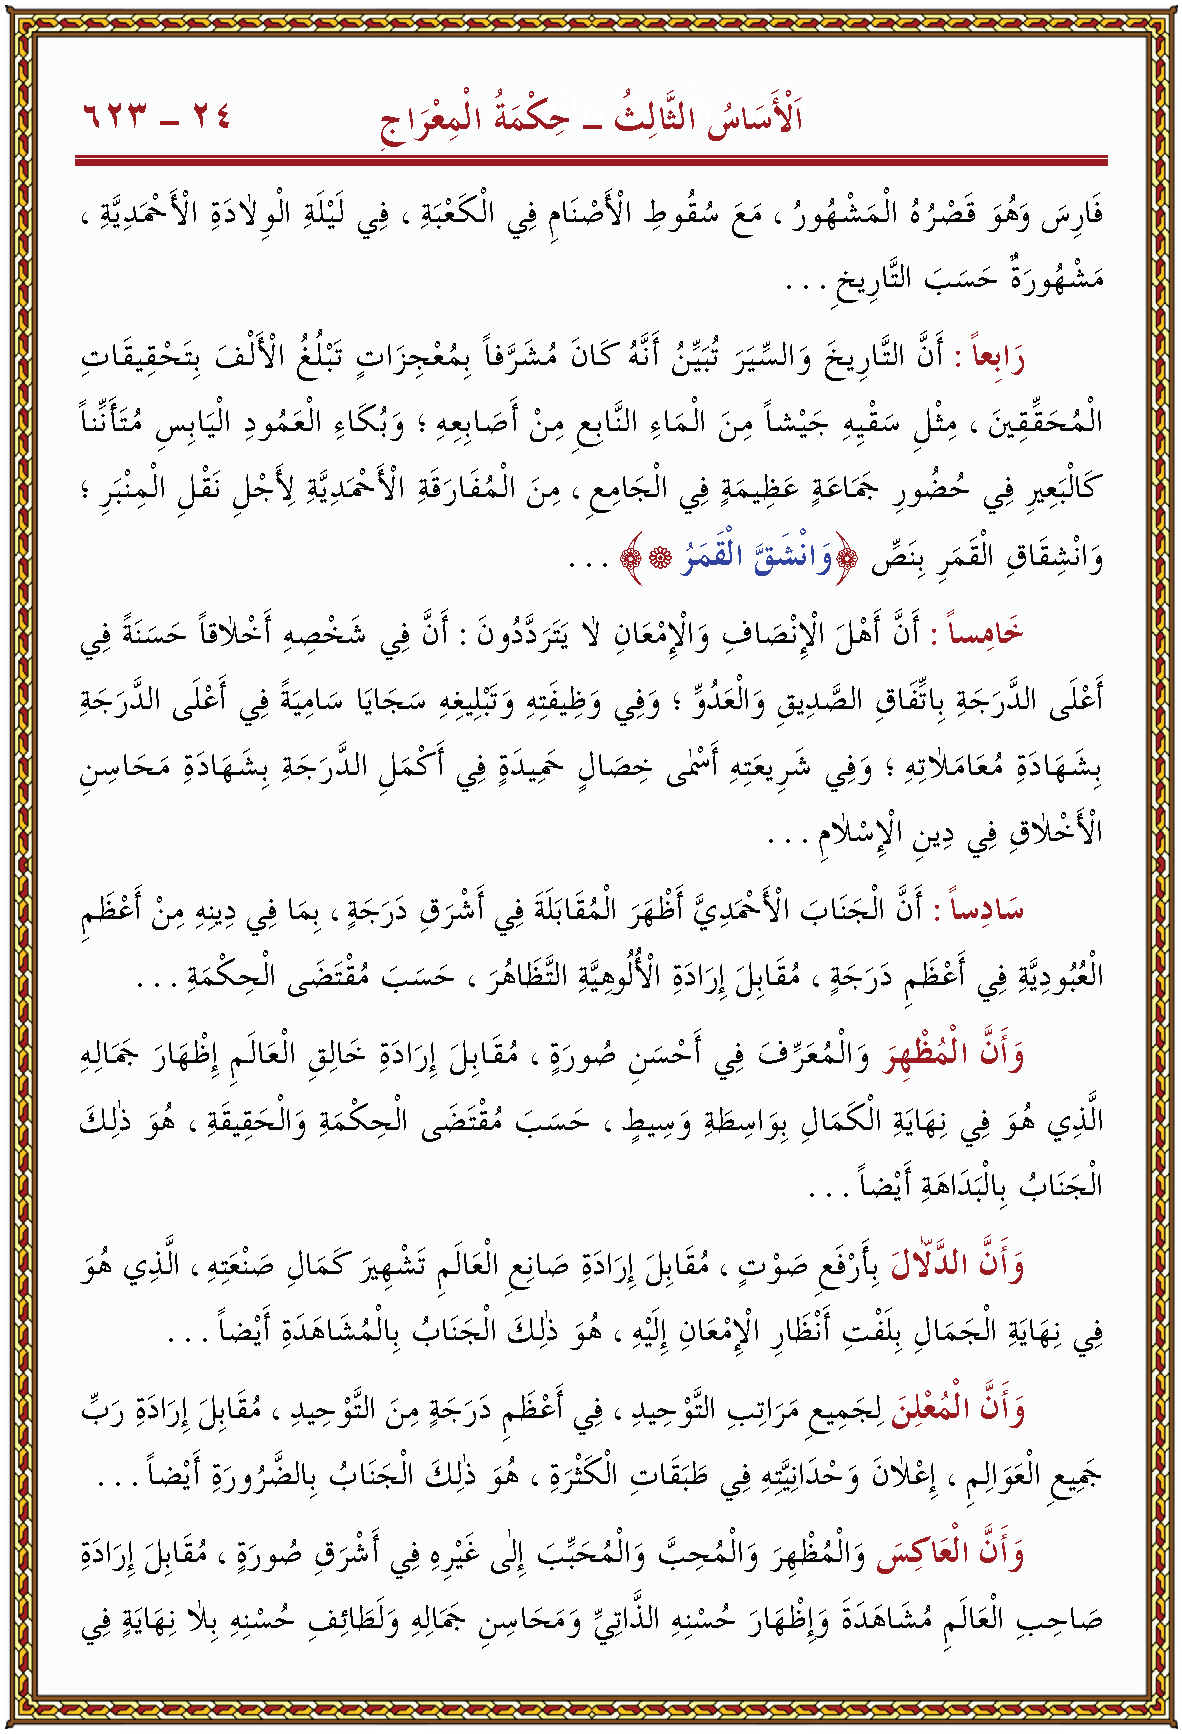 اَلْأَسَاسُ الثَّالِثُ ـ حِكْمَةُ الْمِعْرَاجِ ٢٤ ـ ٦٢٣
فَارِسَ وَهُوَ قَصْرُهُ الْمَشْهُورُ ، مَعَ سُقُوطِ الْأَصْنَامِ فِي الْكَعْبَةِ ، فِي لَيْلَةِ الْوِلَادَةِ الْأَحْمَدِيَّةِ ،
مَشْهُورَةٌ حَسَبَ التَّارِيخِ . . .
رَابِعاً : أَنَّ التَّارِيخَ وَالسِّيَرَ تُبَيِّنُ أَنَّهُ كَانَ مُشَرَّفاً بِمُعْجِزَاتٍ تَبْلُغُ الْأَلْفَ بِتَحْقِيقَاتِ
الْمُحَقِّقِينَ ، مِثْلِ سَقْيِهِ جَيْشاً مِنَ الْمَاءِ النَّابِعِ مِنْ أَصَابِعِهِ ؛ وَبُكَاءِ الْعَمُودِ الْيَابِسِ مُتَأَنِّناً
كَالْبَعِيرِ فِي حُضُورِ جَمَاعَةٍ عَظِيمَةٍ فِي الْجَامِعِ ، مِنَ الْمُفَارَقَةِ الْأَحْمَدِيَّةِ لِأَجْلِ نَقْلِ الْمِنْبَرِ ؛
وَانْشِقَاقِ الْقَمَرِ بِنَصِّ ﴿وَانْشَقَّ الْقَمَرُ ۞ ﴾ . . .
خَامِساً : أَنَّ أَهْلَ الْإِنْصَافِ وَالْإِمْعَانِ لَا يَتَرَدَّدُونَ : أَنَّ فِي شَخْصِهِ أَخْلَاقاً حَسَنَةً فِي
أَعْلَى الدَّرَجَةِ بِاتِّفَاقِ الصَّدِيقِ وَالْعَدُوِّ ؛ وَفِي وَظِيفَتِهِ وَتَبْلِيغِهِ سَجَايَا سَامِيَةً فِي أَعْلَى الدَّرَجَةِ
بِشَهَادَةِ مُعَامَلَاتِهِ ؛ وَفِي شَرِيعَتِهِ أَسْمَى خِصَالٍ حَمِيدَةٍ فِي أَكْمَلِ الدَّرَجَةِ بِشَهَادَةِ مَحَاسِنِ
الْأَخْلَاقِ فِي دِينِ الْإِسْلَامِ . . .
سَادِساً : أَنَّ الْجَنَابَ الْأَحْمَدِيَّ أَظْهَرَ الْمُقَابَلَةَ فِي أَشْرَقِ دَرَجَةٍ ، بِمَا فِي دِينِهِ مِنْ أَعْظَمِ
الْعُبُودِيَّةِ فِي أَعْظَمِ دَرَجَةٍ ، مُقَابِلَ إِرَادَةِ الْأُلُوهِيَّةِ التَّظَاهُرَ ، حَسَبَ مُقْتَضَى الْحِكْمَةِ . . .
وَأَنَّ الْمُظْهِرَ وَالْمُعَرِّفَ فِي أَحْسَنِ صُورَةٍ ، مُقَابِلَ إِرَادَةِ خَالِقِ الْعَالَمِ إِظْهَارَ جَمَالِهِ
الَّذِي هُوَ فِي نِهَايَةِ الْكَمَالِ بِوَاسِطَةِ وَسِيطٍ ، حَسَبَ مُقْتَضَى الْحِكْمَةِ وَالْحَقِيقَةِ ، هُوَ ذٰلِكَ
الْجَنَابُ بِالْبَدَاهَةِ أَيْضاً . . .
وَأَنَّ الدَّلَّالَ بِأَرْفَعِ صَوْتٍ ، مُقَابِلَ إِرَادَةِ صَانِعِ الْعَالَمِ تَشْهِيرَ كَمَالِ صَنْعَتِهِ ، الَّذِي هُوَ
فِي نِهَايَةِ الْجَمَالِ بِلَفْتِ أَنْظَارِ الْإِمْعَانِ إِلَيْهِ ، هُوَ ذٰلِكَ الْجَنَابُ بِالْمُشَاهَدَةِ أَيْضاً . . .
وَأَنَّ الْمُعْلِنَ لِجَمِيعِ مَرَاتِبِ التَّوْحِيدِ ، فِي أَعْظَمِ دَرَجَةٍ مِنَ التَّوْحِيدِ ، مُقَابِلَ إِرَادَةِ رَبِّ
جَمِيعِ الْعَوَالِمِ ، إِعْلَانَ وَحْدَانِيَّتِهِ فِي طَبَقَاتِ الْكَثْرَةِ ، هُوَ ذٰلِكَ الْجَنَابُ بِالضَّرُورَةِ أَيْضاً . . .
وَأَنَّ الْعَاكِسَ وَالْمُظْهِرَ وَالْمُحِبَّ وَالْمُحَبِّبَ إِلٰى غَيْرِهِ فِي أَشْرَقِ صُورَةٍ ، مُقَابِلَ إِرَادَةِ
صَاحِبِ الْعَالَمِ مُشَاهَدَةَ وَإِظْهَارَ حُسْنِهِ الذَّاتِيِّ وَمَحَاسِنِ جَمَالِهِ وَلَطَائِفِ حُسْنِهِ بِلَا نِهَايَةٍ فِي